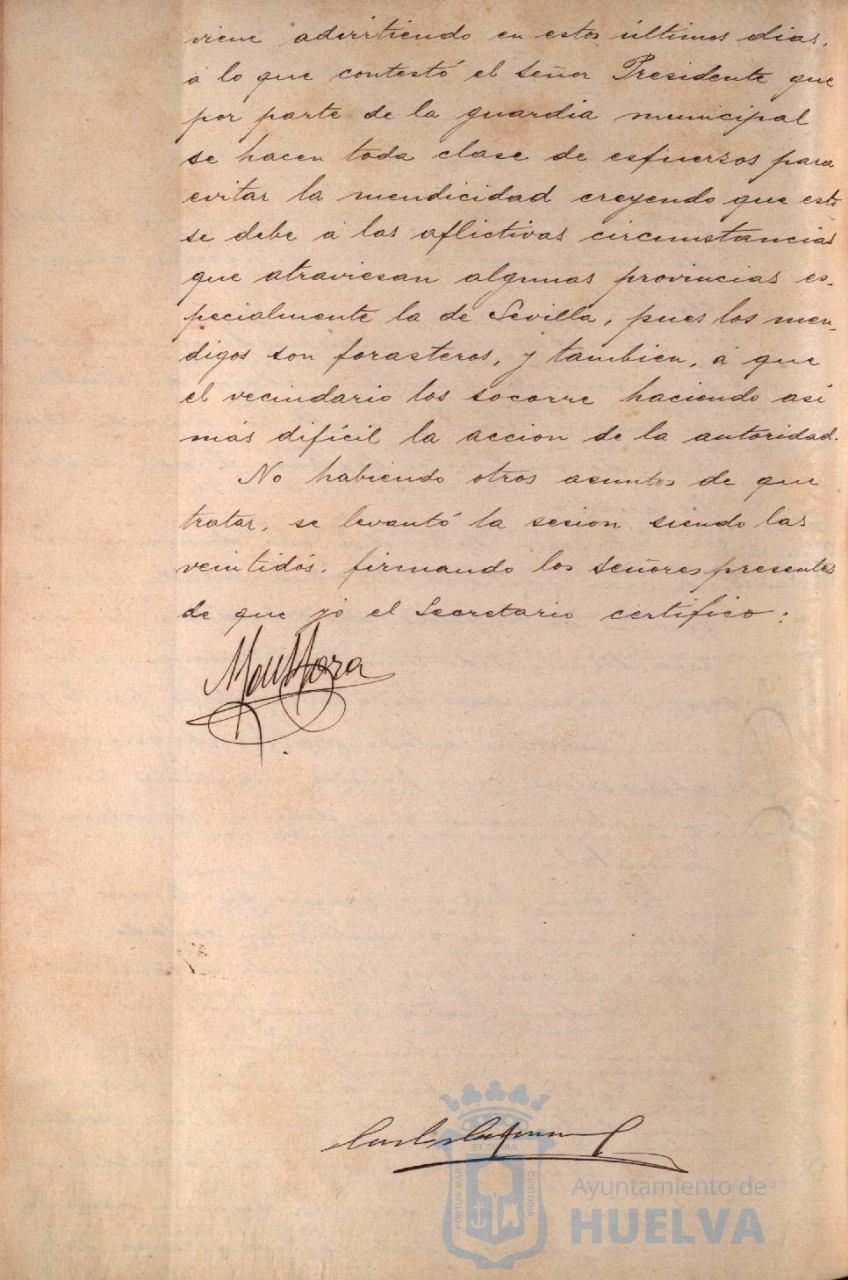 viene advirtiendo en estos últimos dias,
á lo que contestó el señor Presidente que
por parte de la guardia municipal
se hacen toda clase de esfuerzos para
evitar la mendicidad creyendo que esto
se debe á las aflictivas circunstancias
que atraviesan algunas provincias es-
pecialmente la de Sevilla, pues los men-
digos son forasteros, y tambien, á que
el vecindario los socorre haciendo asi
más difícil la accion de la autoridad.
No habiendo otros asuntos de que
tratar, se levantó la sesion siendo las
veintidós, firmando los señores presentes
de que yo el Secretario certifico:
PORTUS MARIS
ET TERRAE
CUSTODIA
Ayuntamiento de
HUELVA